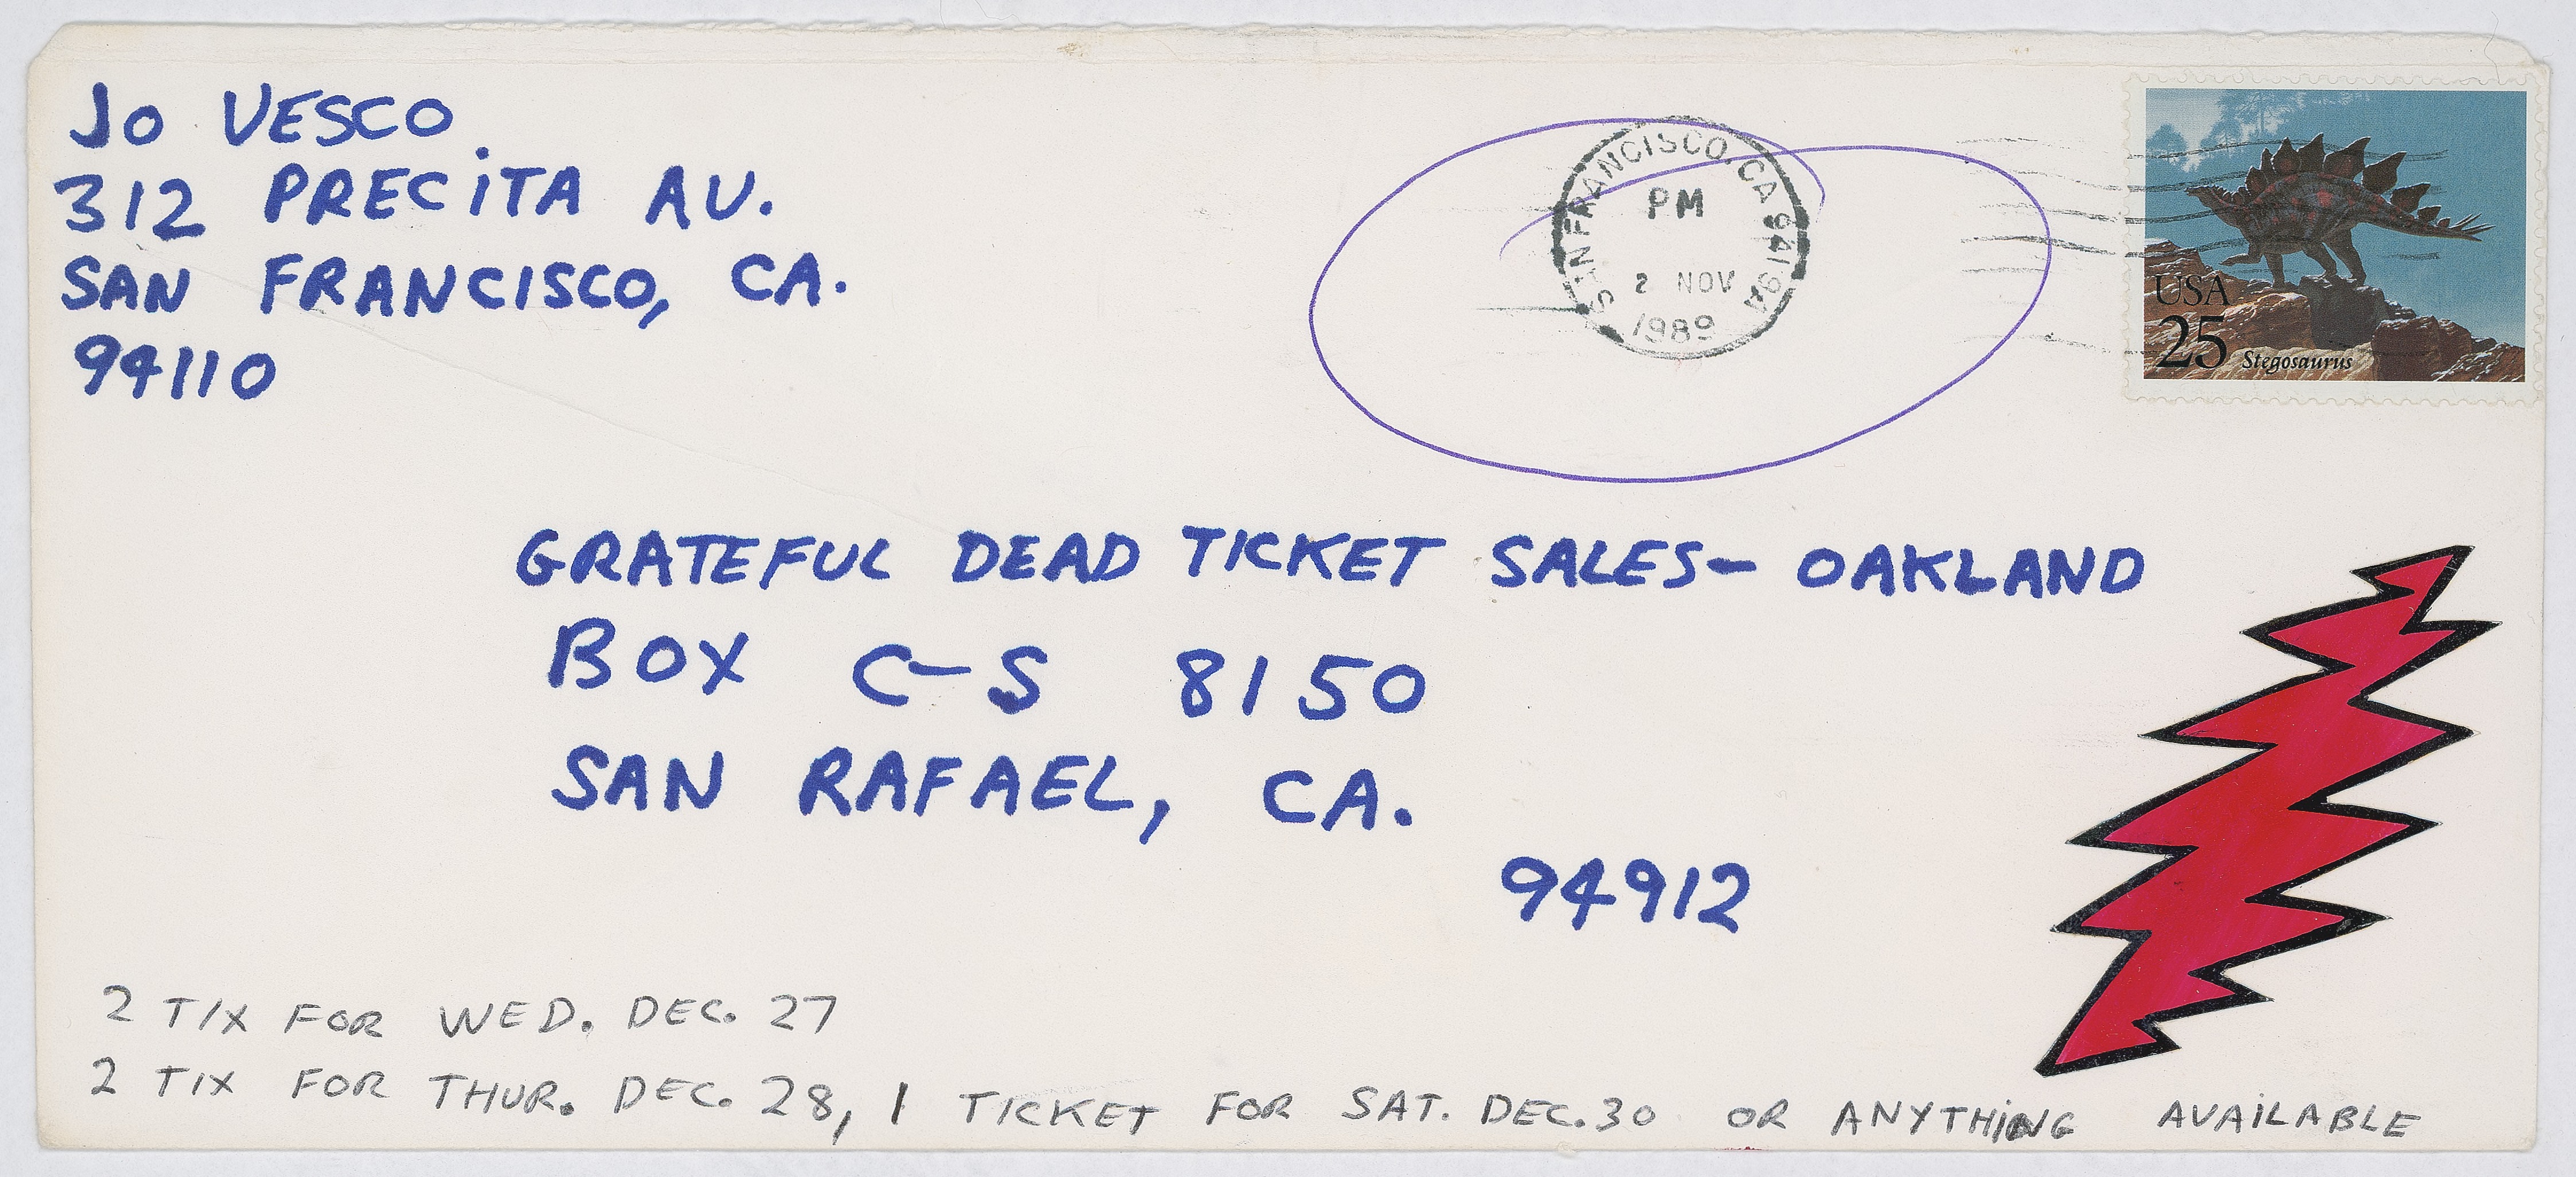 Jo VESCO
312 PRECiTA AV.
SAN FRANCISCO, CA.
94110
SAN FRANCISCO, CA 941 94
PM
2 NOV
1989
USA
25 Stegosaurus
GRATEFUL DEAD TICKET SALES- OAKLAND
BOX C-S 8150
SAN RAFAEL, CA.
94912
2 TIX FOR WED. DEC. 27
2 TIX FOR THUR. DEC. 28, 1 TICKET FOR SAT. DEC. 30 OR ANYTHiNG AVAiLABLE